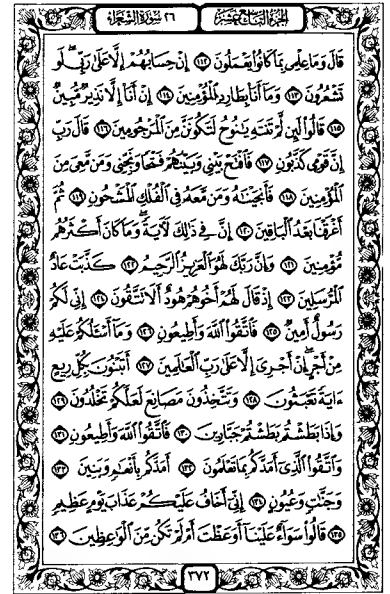 ٢٦ سُورَةُ الشُّعَرَاءِ
الجُزْءُ التَّاسِعُ عَشَرَ
قَالَ وَمَا عِلْمِى بِمَا كَانُوا۟ يَعْمَلُونَ ١١٢ إِنْ حِسَابُهُمْ إِلَّا عَلَىٰ رَبِّى لَوْ
تَشْعُرُونَ ١١٣ وَمَآ أَنَا۠ بِطَارِدِ ٱلْمُؤْمِنِينَ ١١٤ إِنْ أَنَا۠ إِلَّا نَذِيرٌ مُّبِينٌ
١١٥ قَالُوا۟ لَئِن لَّمْ تَنتَهِ يَٰنُوحُ لَتَكُونَنَّ مِنَ ٱلْمَرْجُومِينَ ١١٦ قَالَ رَبِّ
إِنَّ قَوْمِى كَذَّبُونِ ١١٧ فَٱفْتَحْ بَيْنِى وَبَيْنَهُمْ فَتْحًا وَنَجِّنِى وَمَن مَّعِىَ مِنَ
ٱلْمُؤْمِنِينَ ١١٨ فَأَنجَيْنَٰهُ وَمَن مَّعَهُۥ فِى ٱلْفُلْكِ ٱلْمَشْحُونِ ١١٩ ثُمَّ
أَغْرَقْنَا بَعْدُ ٱلْبَاقِينَ ١٢٠ إِنَّ فِى ذَٰلِكَ لَءَايَةً وَمَا كَانَ أَكْثَرُهُم
مُّؤْمِنِينَ ١٢١ وَإِنَّ رَبَّكَ لَهُوَ ٱلْعَزِيزُ ٱلرَّحِيمُ ١٢٢ كَذَّبَتْ عَادٌ
ٱلْمُرْسَلِينَ ١٢٣ إِذْ قَالَ لَهُمْ أَخُوهُمْ هُودٌ أَلَا تَتَّقُونَ ١٢٤ إِنِّى لَكُمْ
رَسُولٌ أَمِينٌ ١٢٥ فَٱتَّقُوا۟ ٱللَّهَ وَأَطِيعُونِ ١٢٦ وَمَآ أَسْـَٔلُكُمْ عَلَيْهِ
مِنْ أَجْرٍ إِنْ أَجْرِىَ إِلَّا عَلَىٰ رَبِّ ٱلْعَٰلَمِينَ ١٢٧ أَتَبْنُونَ بِكُلِّ رِيعٍ
ءَايَةً تَعْبَثُونَ ١٢٨ وَتَتَّخِذُونَ مَصَانِعَ لَعَلَّكُمْ تَخْلُدُونَ ١٢٩
وَإِذَا بَطَشْتُم بَطَشْتُمْ جَبَّارِينَ ١٣٠ فَٱتَّقُوا۟ ٱللَّهَ وَأَطِيعُونِ ١٣١
وَٱتَّقُوا۟ ٱلَّذِىٓ أَمَدَّكُم بِمَا تَعْلَمُونَ ١٣٢ أَمَدَّكُم بِأَنْعَٰمٍ وَبَنِينَ ١٣٣
وَجَنَّٰتٍ وَعُيُونٍ ١٣٤ إِنِّىٓ أَخَافُ عَلَيْكُمْ عَذَابَ يَوْمٍ عَظِيمٍ
١٣٥ قَالُوا۟ سَوَآءٌ عَلَيْنَآ أَوَعَظْتَ أَمْ لَمْ تَكُن مِّنَ ٱلْوَٰعِظِينَ ١٣٦
٣٧٢